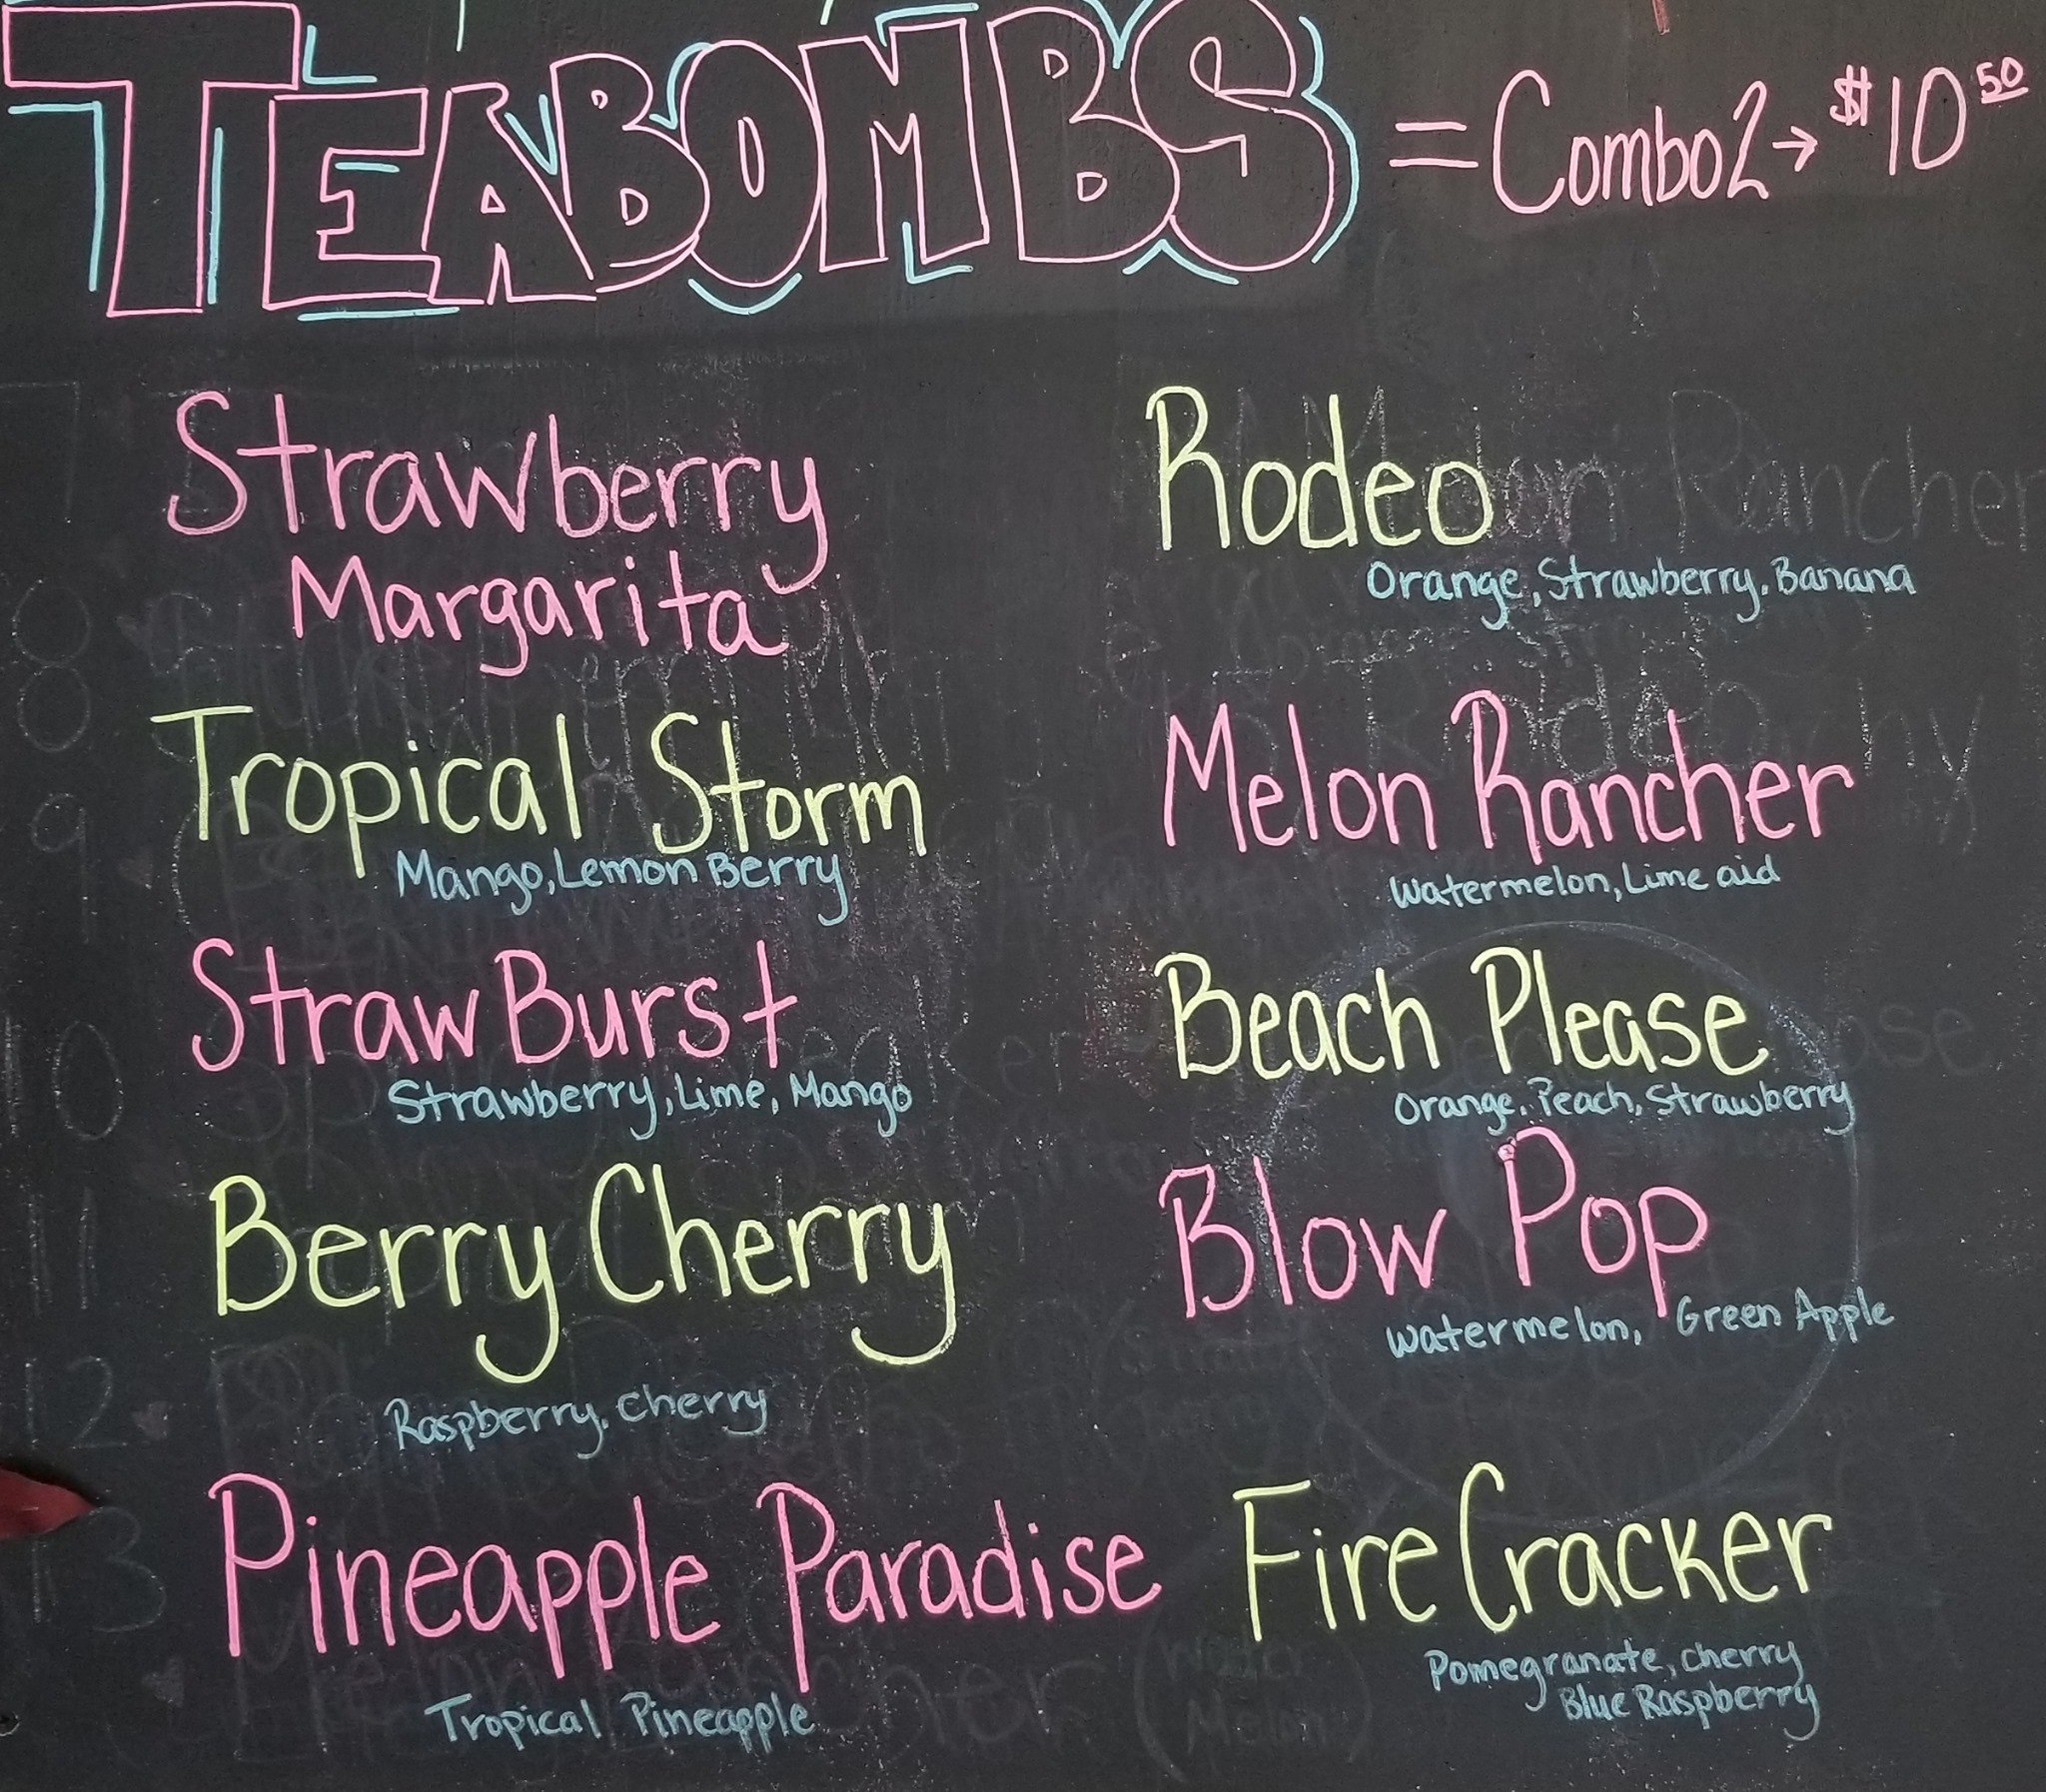 TEABOMBS = Combo 2 → $10 50
Strawberry
Margarita
Tropical Storm
Mango, Lemon Berry
Straw Burst
Strawberry, Lime, Mango
Berry Cherry
Raspberry, Cherry
Pineapple Paradise
Tropical Pineapple
Rodeo
Orange, Strawberry, Banana
Melon Rancher
Watermelon, Lime aid
Beach Please
Orange, Peach, Strawberry
Blow Pop
Watermelon, Green Apple
Fire Cracker
Pomegranate, cherry
Blue Raspberry